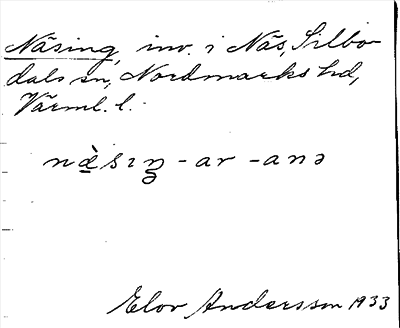 Näsing, inv. i Näs, Silbo-
dals sn, Nordmarks hd,
Värml. l.
næ̀sɪŋ -ar -anə
Elov Andersson 1933